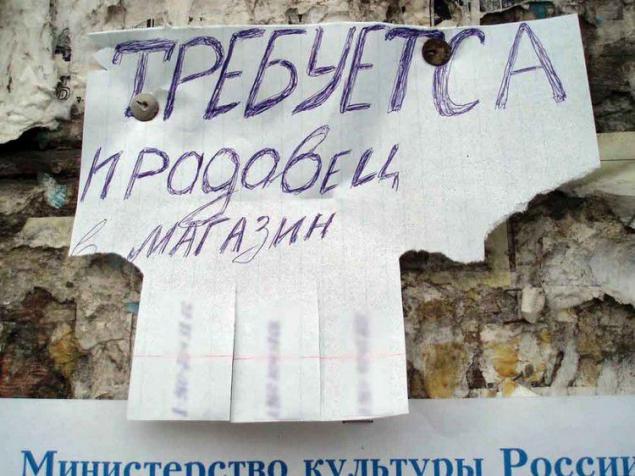 ТРЕБУЕТСА
ПРОДАВЕЦ
в МАГАЗИН
Министерство культуры России